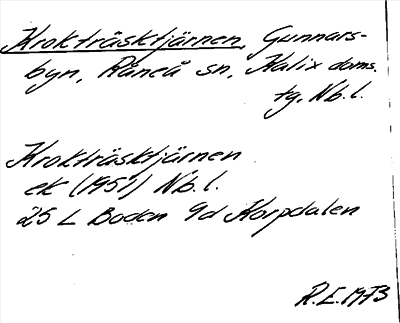 Krokträsktjärnen, Gunnars-
byn, Råneå sn, Kalix doms.
tg, Nb.l.
Krokträsktjärnen
ek (1951) Nb.l.
25 L Boden 9d Korpdalen
R.E. 1973